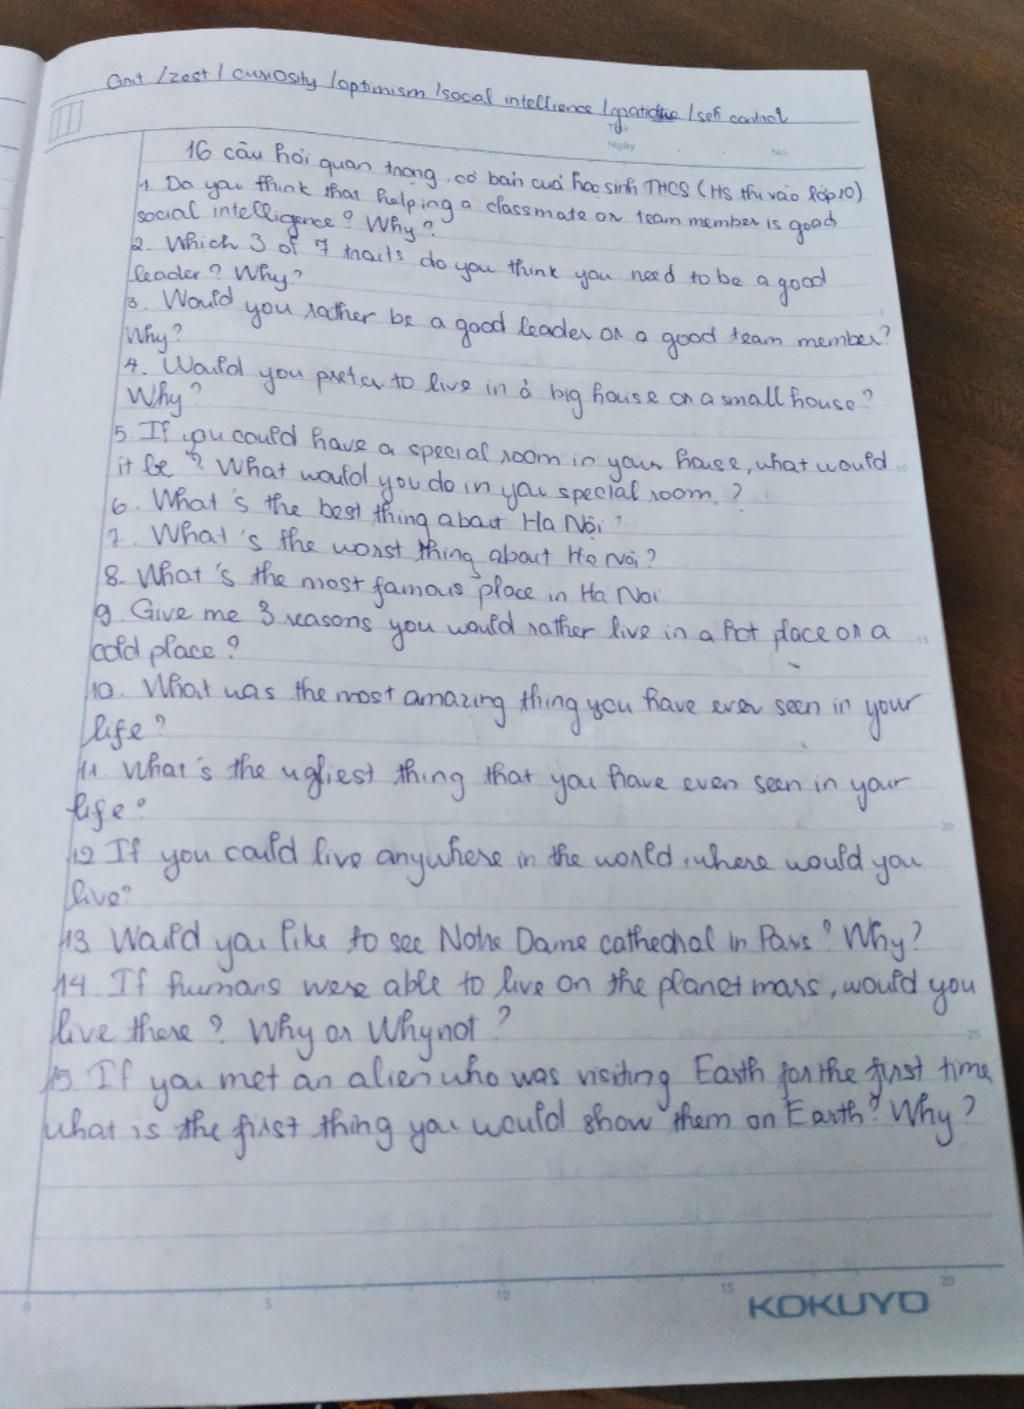 Grit /zest / curiosity /optimism /social intellience /gratidtue /self control
Thứ
Ngày
No.
16 câu hỏi quan trọng, cơ bản của học sinh THCS (HS thi vào lớp 10)
1. Do you think that helping a classmate or team member is good
social intelligence? Why?
2. Which 3 of 7 traits do you think you need to be a good
leader? Why?
3. Would you rather be a good leader or a good team member?
Why?
4. Would you prefer to live in a big house or a small house?
Why?
5. If you could have a special room in your house, what would
it be? What would you do in you special room.?
6. What's the best thing about Ha Nội?
7. What's the worst thing about Ha Nôi?
8. What's the most famous place in Ha Noi
9. Give me 3 reasons you would rather live in a hot place or a
cold place?
10. What was the most amazing thing you have ever seen in your
life?
11. What's the ugliest thing that you have ever seen in your
life?
12 If you could live anywhere in the world, where would you
live?
13 Would you like to see Notre Dame cathedral in Paris? Why?
14. If humans were able to live on the planet mars, would you
live there? Why or Why not?
15 If you met an alien who was visiting Earth for the first time,
what is the first thing you would show them on Earth? Why?
5
10
15
20
25
0
5
10
15
20
KOKUYO